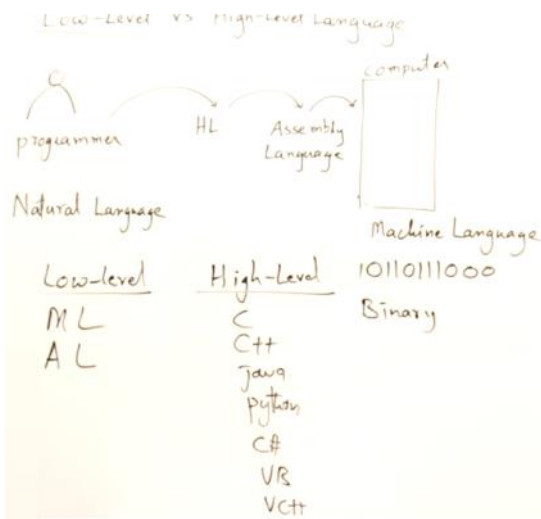 Low-Level vs High-Level Language
computer
programmer
HL
Assembly
Language
Natural Language
Machine Language
10110111000
Binary
Low-level
ML
AL
High-Level
C
C++
java
python
C#
VB
VC++